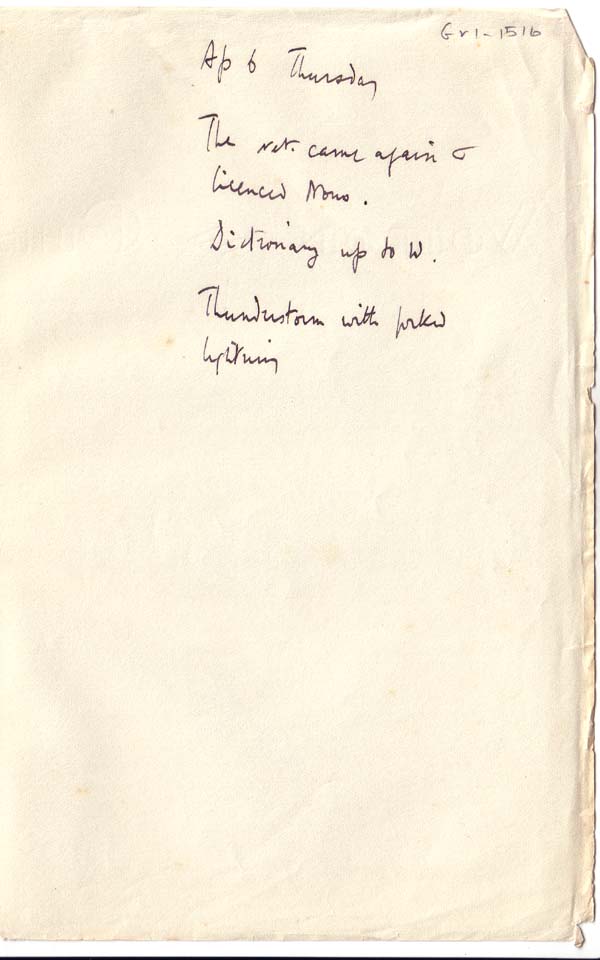 Gr1-1516
Ap 6 Thursday
The vet. came again &
licenced Nono.
Dictionary up to W.
Thunderstorm with forked
lightning